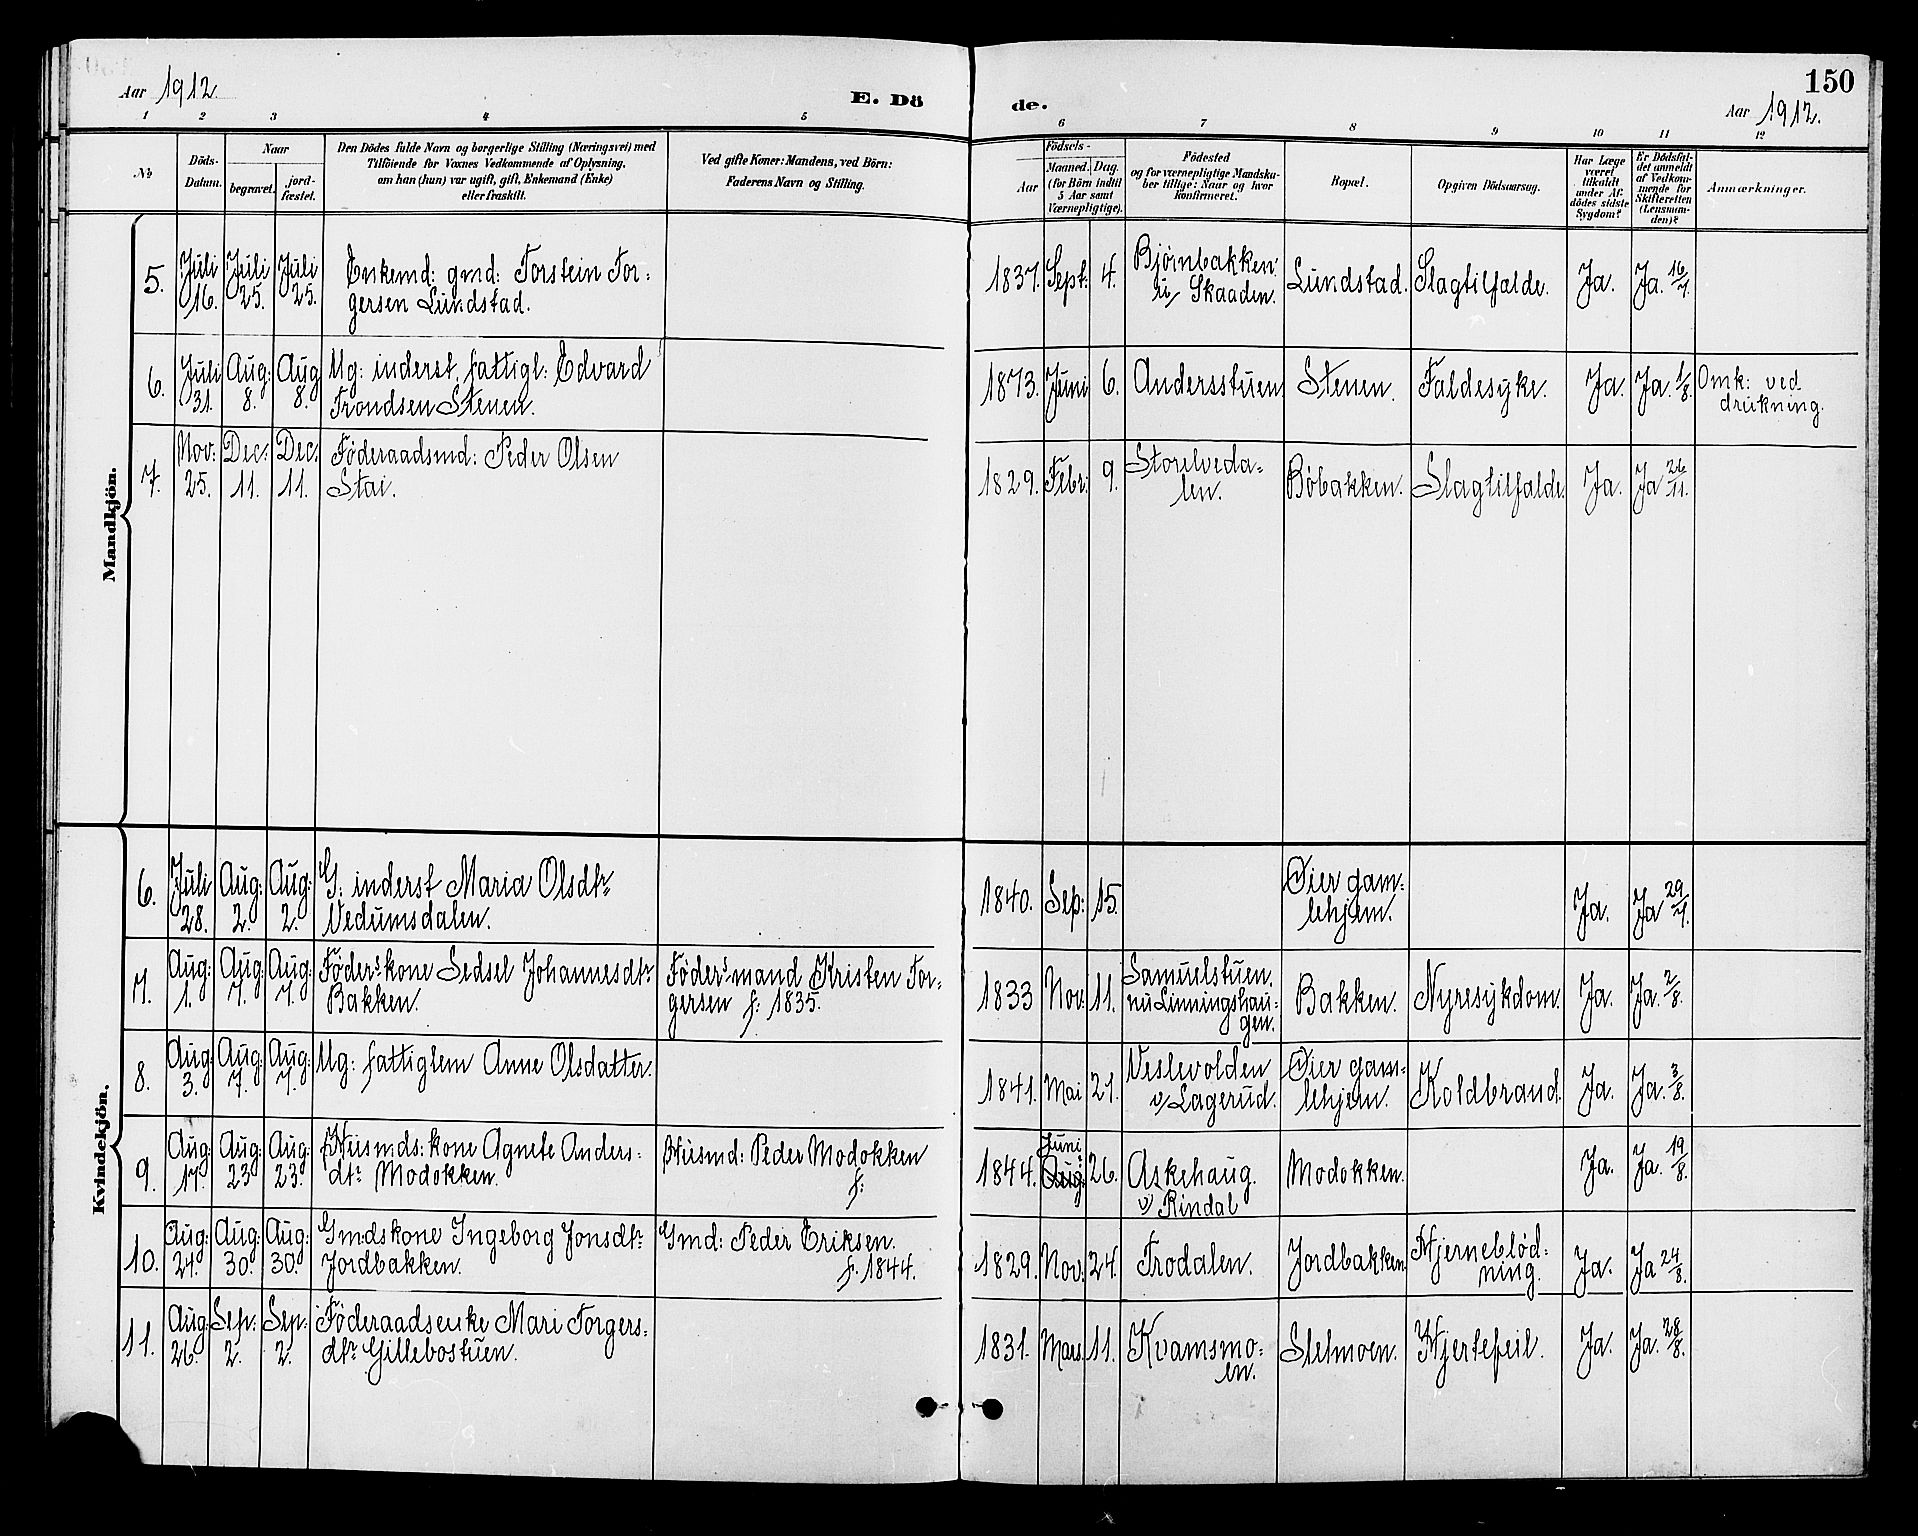 Aar 1912
E. Dö
de.
150
Aar 1912.
1 2 3 4 5 6 7 8 9 10 11 12
№
Döds-
Datum.
Naar
begravet.
jord-
fæstet.
Den Dödes fulde Navn og borgerlige Stilling (Næringsvei) med
Tilföiende for Voxnes Vedkommende af Oplysning,
om han (hun) var ugift, gift, Enkemand (Enke)
eller fraskilt.
Ved gifte Koner: Mandens, ved Börn:
Faderens Navn og Stilling.
Födsels-
Aar
Maaned. Dag.
(for Börn indtil
5 Aar samt
Værnepligtige).
Födested
og for værnepligtige Mandska-
ber tillige: Naar og hvor
konfirmeret.
Bopæl.
Opgiven Dödsaarsag.
Har Læge
været
tilkaldt
under Af-
dödes sidste
Sygdom?
Er Dödsfal-
det anmeldt
af Vedkom-
mende for
Skifteretten
(Lensman-
den)?
Anmærkninger.
Mandkjön.
5. Juli 16. Juli 25. Juli 25. Enkemd: gmd: Torstein Tor-
gersen Lundstad.
1837. Sept: 4. Bjørnbakken
u/ Skaaden. Lundstad. Slagtilfælde. Ja. Ja. 16/7.
6. Juli 31. Aug: 8. Aug 8. Ug: inderst, fattigl: Edvard
Trondsen Stenen.
1873. Juni 6. Andersstuen Stenen. Faldesyke. Ja. Ja. 1/8. Omk: ved
drukning.
7. Nov: 25. Dec: 11. Dec: 11. Føderaadsmd: Peder Olsen
Stai.
1829. Febr: 9. Storelveda-
len. Bøbakken. Slagtilfælde. Ja. Ja 26/11.
Kvindekjön.
6. Juli 28. Aug: 2. Aug: 2. G: inderst Maria Olsdtr
Vedumsdalen.
1840. Sep: 15. Øier gam-
lehjem. Ja. Ja 29/7.
7. Aug: 1. Aug: 7. Aug: 7. Føder:kone Sedsel Johannesdtr
Bakken.
Føder:mand Kristen Tor-
gersen f: 1835.
1833 Nov: 11. Samuelstuen.
nu Linningshau-
gen. Bakken. Nyresykdom. Ja. Ja. 2/8.
8. Aug: 3. Aug: 7. Aug: 7. Ug: fattiglem Anne Olsdatter.
1841. Mai 21. Veslevolden
v/ Lagerud. Øier gam-
lehjem. Koldbrand. Ja. Ja. 3/8.
9. Aug: 17. Aug: 23 Aug: 23. Husmds:kone Agnete Anders-
dtr Modokken.
Husmd: Peder Modokken
f:
1844. Juni Aug: 26. Askehaug.
v/ Rindal Modokken. Ja. Ja. 19/8.
10. Aug: 24. Aug: 30. Aug: 30. Gmdskone Ingeborg Jonsdtr
Jordbakken.
Gmd: Peder Eriksen.
f. 1844.
1829. Nov: 24. Trodalen. Jordbakken Hjerneblød-
ning. Ja. Ja 24/8.
11. Aug: 26. Sep: 2. Sep: 2. Føderaadsenke Mari Torgers-
dtr Gillebostuen.
1831. Mars. 11. Kvamsmo-
en. Sletmoen. Hjertefeil. Ja. Ja. 28/8.